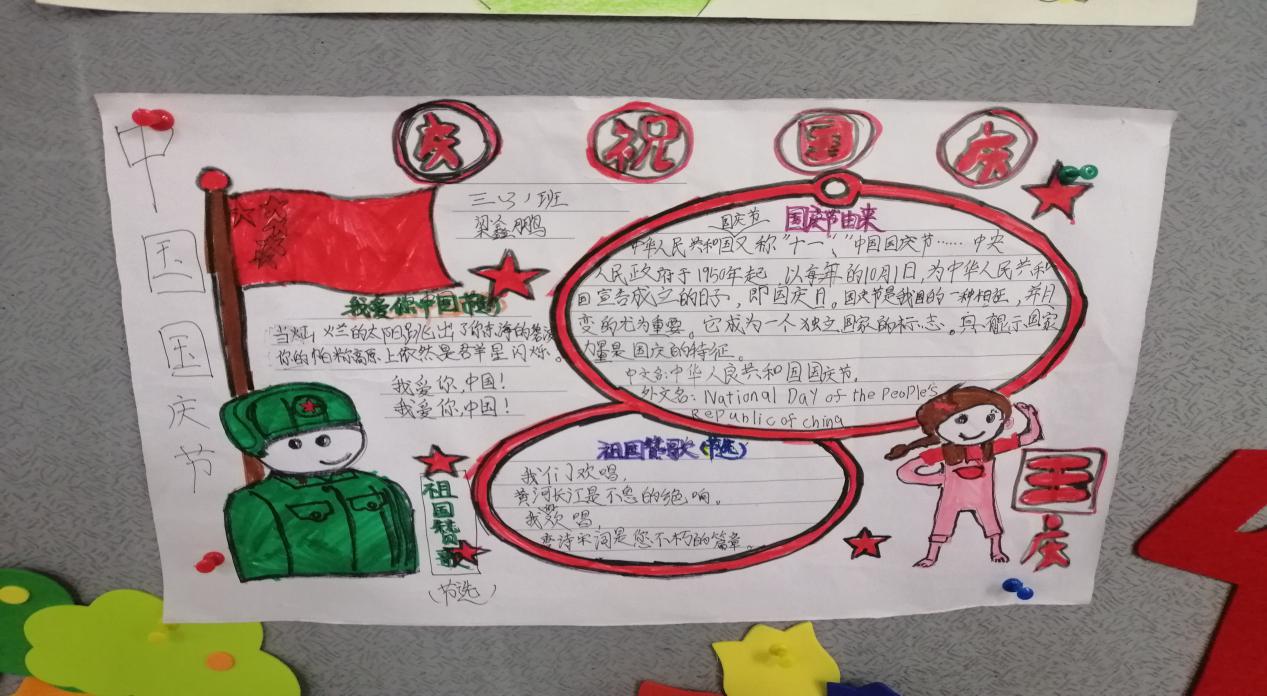 庆祝国庆
中国国庆节
三(3)班
梁鑫鹏
我爱你中国(节选)
当灿烂的太阳跳出了你东海的碧波
你的帕米尔高原上依然是群星闪烁。
我爱你,中国!
我爱你,中国!
国庆节由来
国庆节
中华人民共和国又称“十一”、“中国国庆节…… 中央
人民政府于1950年起,以每年的10月1日,为中华人民共和
国宣告成立的日子,即国庆日。国庆节是我国的一种相征,并且
变的尤为重要。它成为一个独立国家的标志。具有显示国家
力量是国庆的特征。
中文名:中华人民共和国国庆节。
外文名:National Day of the People's
Republic of china
祖国赞歌(节选)
我们欢唱,
黄河长江是不息的绝响。
我欢唱,
唐诗宋词是您不朽的篇章。
祖国赞歌
(节选)
国庆